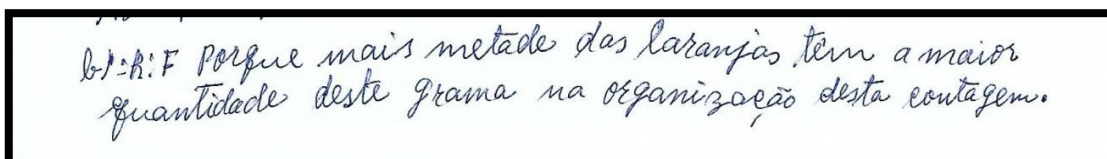 b)=R:F Porque mais metade das laranjas têm a maior
quantidade deste grama na organização desta contagem.